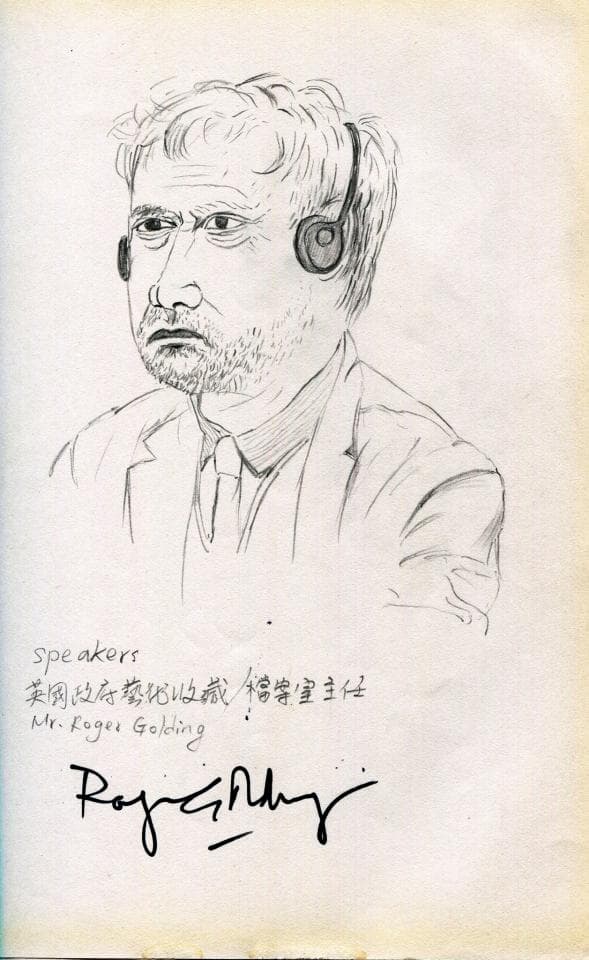 speakers
英國政府藝術收藏/檔案室主任
Mr. Roger Golding
Roger Golding